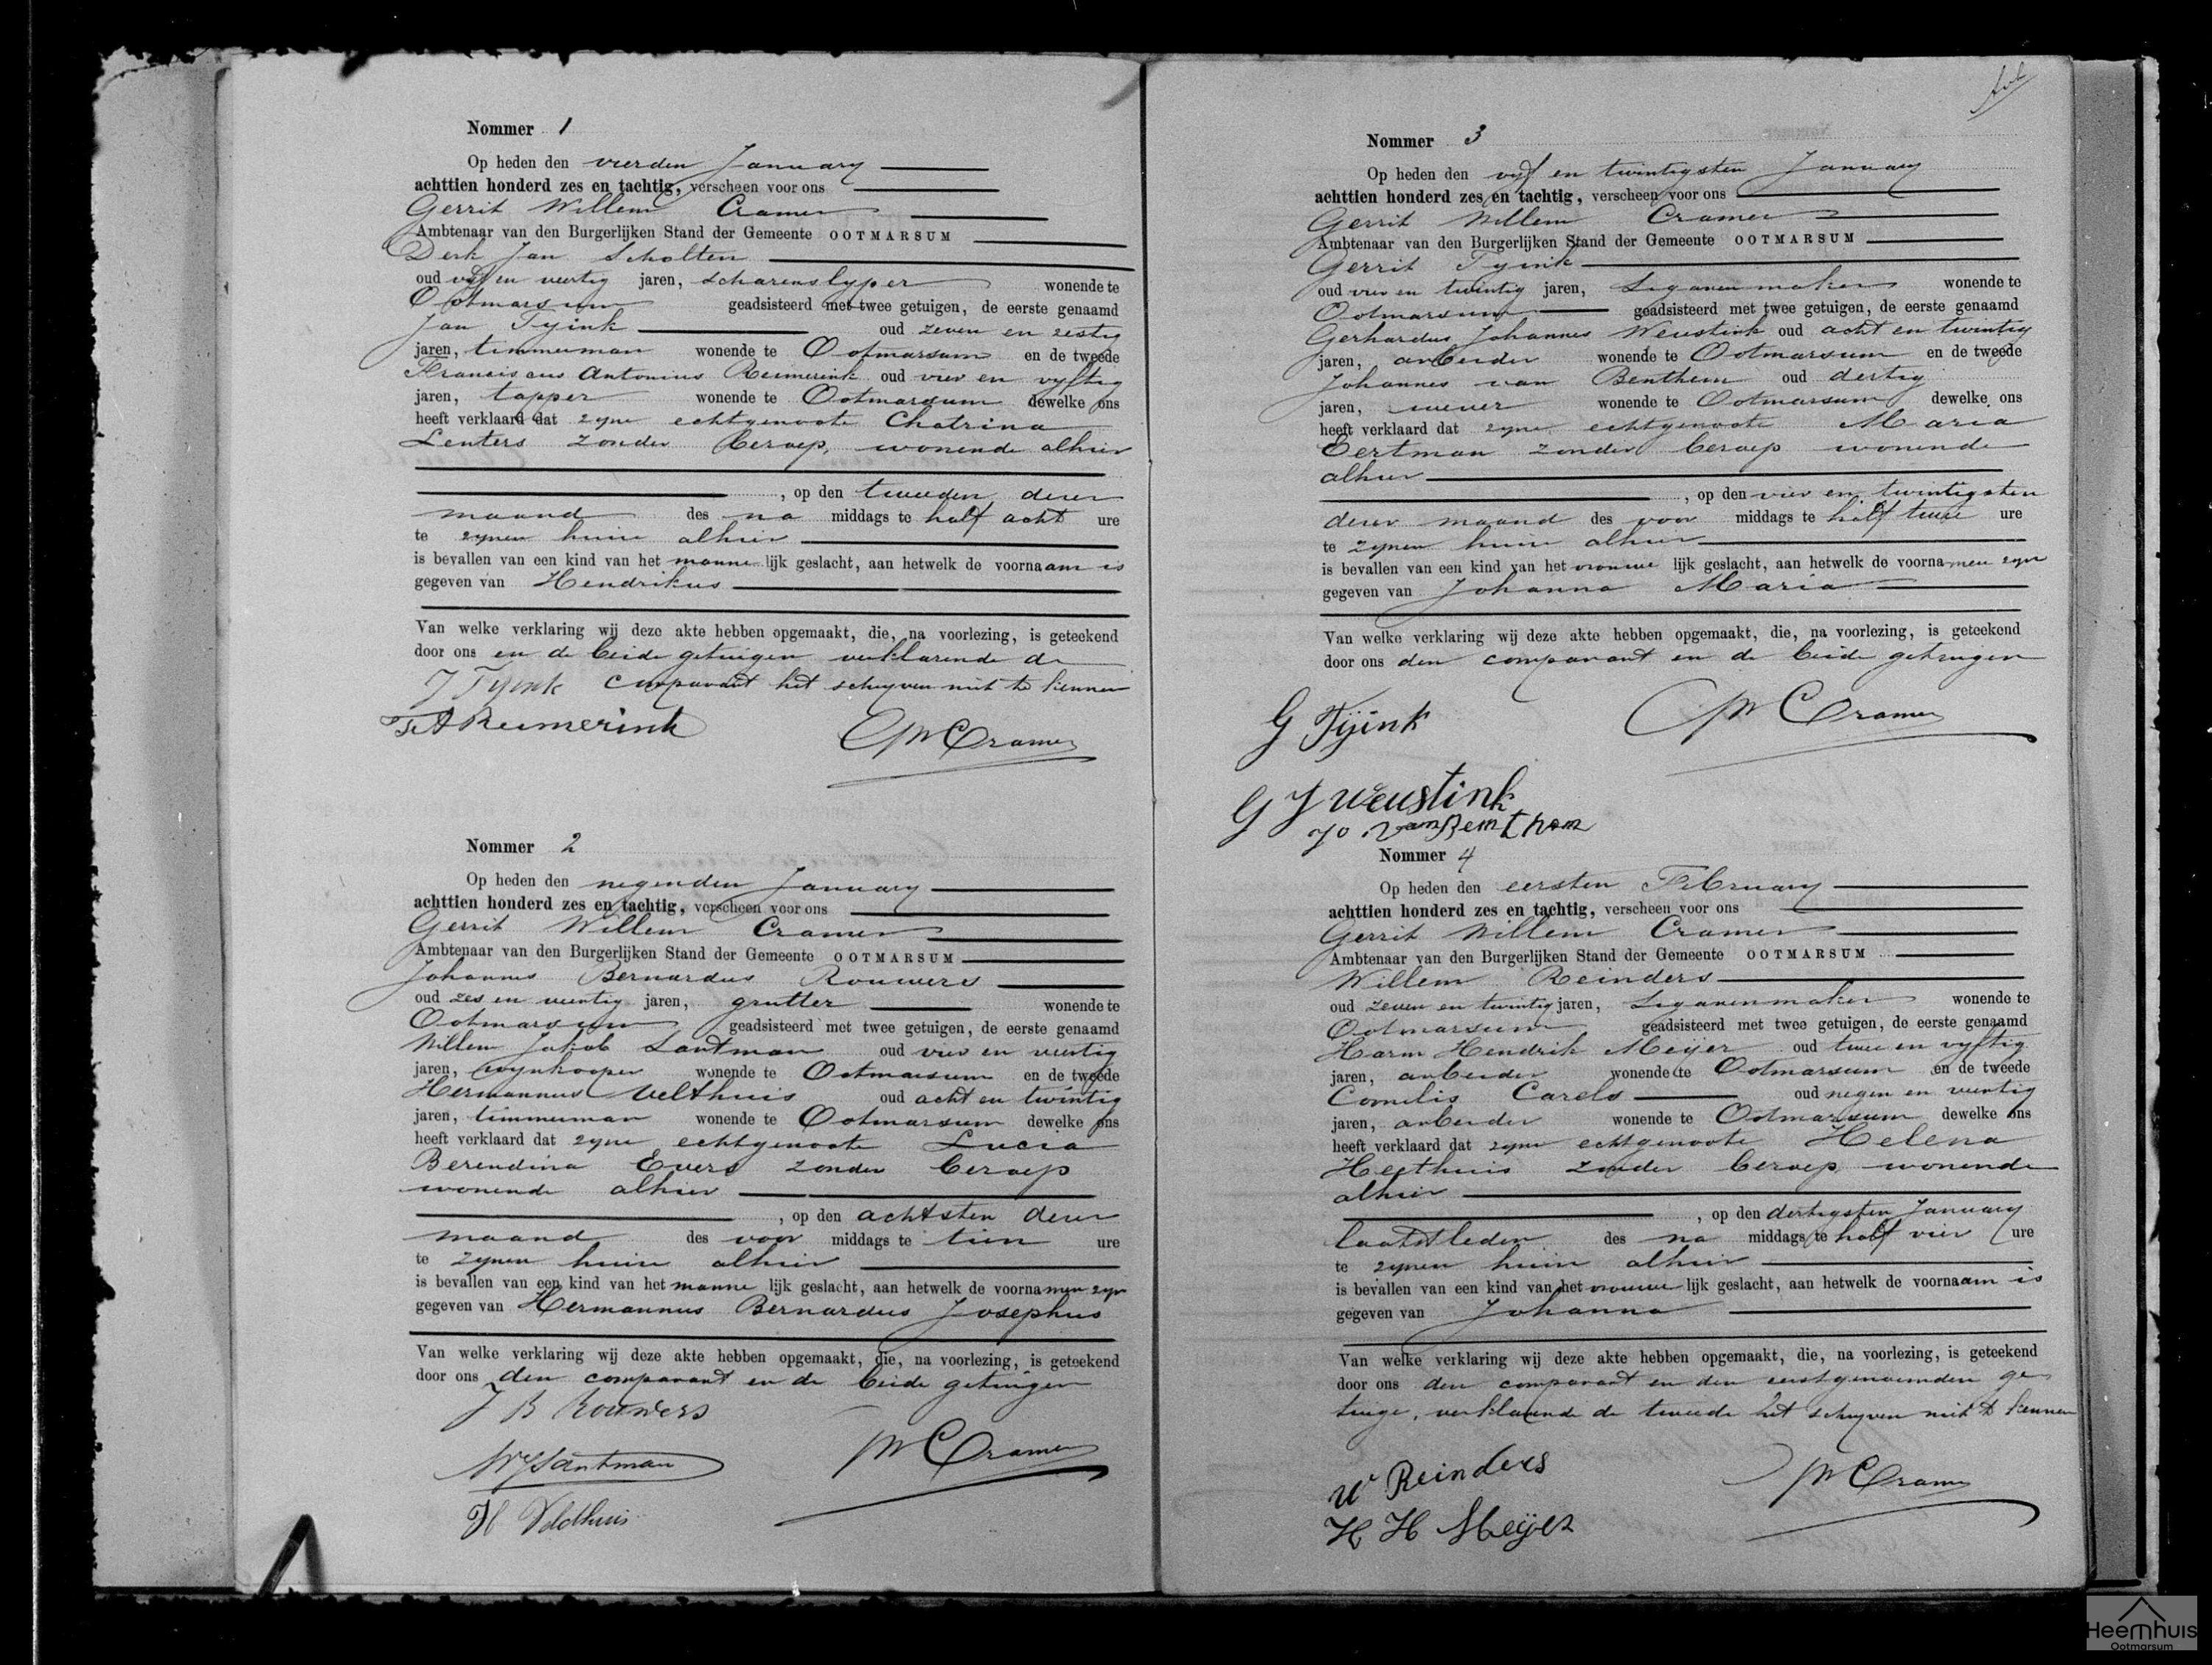 Nommer 1
Op heden den vierden January
achttien honderd zes en tachtig, verscheen voor ons
Gerrit Willem Cramer
Ambtenaar van den Burgerlijken Stand der Gemeente OOTMARSUM
Derk Jan Scholten
oud vijf en veertig jaren, scharenslyper wonende te
Ootmarsum geadsisteerd met twee getuigen, de eerste genaamd
Jan Tyink oud zeven en zestig
jaren, timmerman wonende te Ootmarsum en de tweede
Franciscus Antonius Reimerink oud vier en vyftig
jaren, tapper wonende te Ootmarsum dewelke ons
heeft verklaard dat zyne echtgenoote Chatrina
Lenters zonder beroep, wonende alhier
, op den tweeden dezer
maand des na middags te half acht ure
te zynen huize alhier
is bevallen van een kind van het manne lijk geslacht, aan hetwelk de voornaam is
gegeven van Hendrikus
Van welke verklaring wij deze akte hebben opgemaakt, die, na voorlezing, is geteekend
door ons en de beide getuigen verklarende de
J Tyink comparant het schryven niet te kennen
F A Reimerink GW Cramer
Nommer 2
Op heden den negenden January
achttien honderd zes en tachtig, verscheen voor ons
Gerrit Willem Cramer
Ambtenaar van den Burgerlijken Stand der Gemeente OOTMARSUM
Johannes Bernardus Rouwers
oud zes en veertig jaren, grutter wonende te
Ootmarsum geadsisteerd met twee getuigen, de eerste genaamd
Willem Jakob Santman oud vier en veertig
jaren, wynkooper wonende te Ootmarsum en de tweede
Hermannus Velthuis oud acht en twintig
jaren, timmerman wonende te Ootmarsum dewelke ons
heeft verklaard dat zyne echtgenoote Lucia
Berendina Evers zonder beroep
wonende alhier
, op den achtsten dezer
maand des voor middags te tien ure
te zynen huize alhier
is bevallen van een kind van het manne lijk geslacht, aan hetwelk de voornamen zyn
gegeven van Hermannus Bernardus Josephus
Van welke verklaring wij deze akte hebben opgemaakt, die, na voorlezing, is geteekend
door ons den comparant en de beide getuigen
J B Rouwers
WJSantman GW Cramer
H Veldhuis
Nommer 3
Op heden den vijf en twintigsten January
achttien honderd zes en tachtig, verscheen voor ons
Gerrit Willem Cramer
Ambtenaar van den Burgerlijken Stand der Gemeente OOTMARSUM
Gerrit Tyink
oud vier en twintig jaren, Sigarenmaker wonende te
Ootmarsum geadsisteerd met twee getuigen, de eerste genaamd
Gerhardus Johannes Weustink oud acht en twintig
jaren, arbeider wonende te Ootmarsum en de tweede
Johannes van Benthem oud dertig
jaren, wever wonende te Ootmarsum dewelke ons
heeft verklaard dat zyne echtgenoote Maria
Eertman zonder beroep wonende
alhier
, op den vier en twintigsten
dezer maand des voor middags te half twee ure
te zynen huize alhier
is bevallen van een kind van het vrouwe lijk geslacht, aan hetwelk de voornamen zyn
gegeven van Johanna Maria
Van welke verklaring wij deze akte hebben opgemaakt, die, na voorlezing, is geteekend
door ons den comparant en de beide getuigen
G Tijink GW Cramer
G J Weustink
Jo van Bemthem
Nommer 4
Op heden den eersten February
achttien honderd zes en tachtig, verscheen voor ons
Gerrit Willem Cramer
Ambtenaar van den Burgerlijken Stand der Gemeente OOTMARSUM
Willem Reinders
oud zeven en twintig jaren, Sigarenmaker wonende te
Ootmarsum geadsisteerd met twee getuigen, de eerste genaamd
Harm Hendrik Meijer oud twee en vyftig
jaren, arbeider wonende te Ootmarsum en de tweede
Cornelis Carels oud negen en veertig
jaren, arbeider wonende te Ootmarsum dewelke ons
heeft verklaard dat zyne echtgenoote Helena
Heethuis zonder beroep wonende
alhier
, op den dertigsten January
laatstleden des na middags te half vier ure
te zynen huize alhier
is bevallen van een kind van het vrouwe lijk geslacht, aan hetwelk de voornaam is
gegeven van Johanna
Van welke verklaring wij deze akte hebben opgemaakt, die, na voorlezing, is geteekend
door ons den comparant en den eerstgenoemden ge
tuige, verklarende de tweede het schryven niet te kennen
W Reinders GW Cramer
H H Meijer
Heemhuis
Ootmarsum